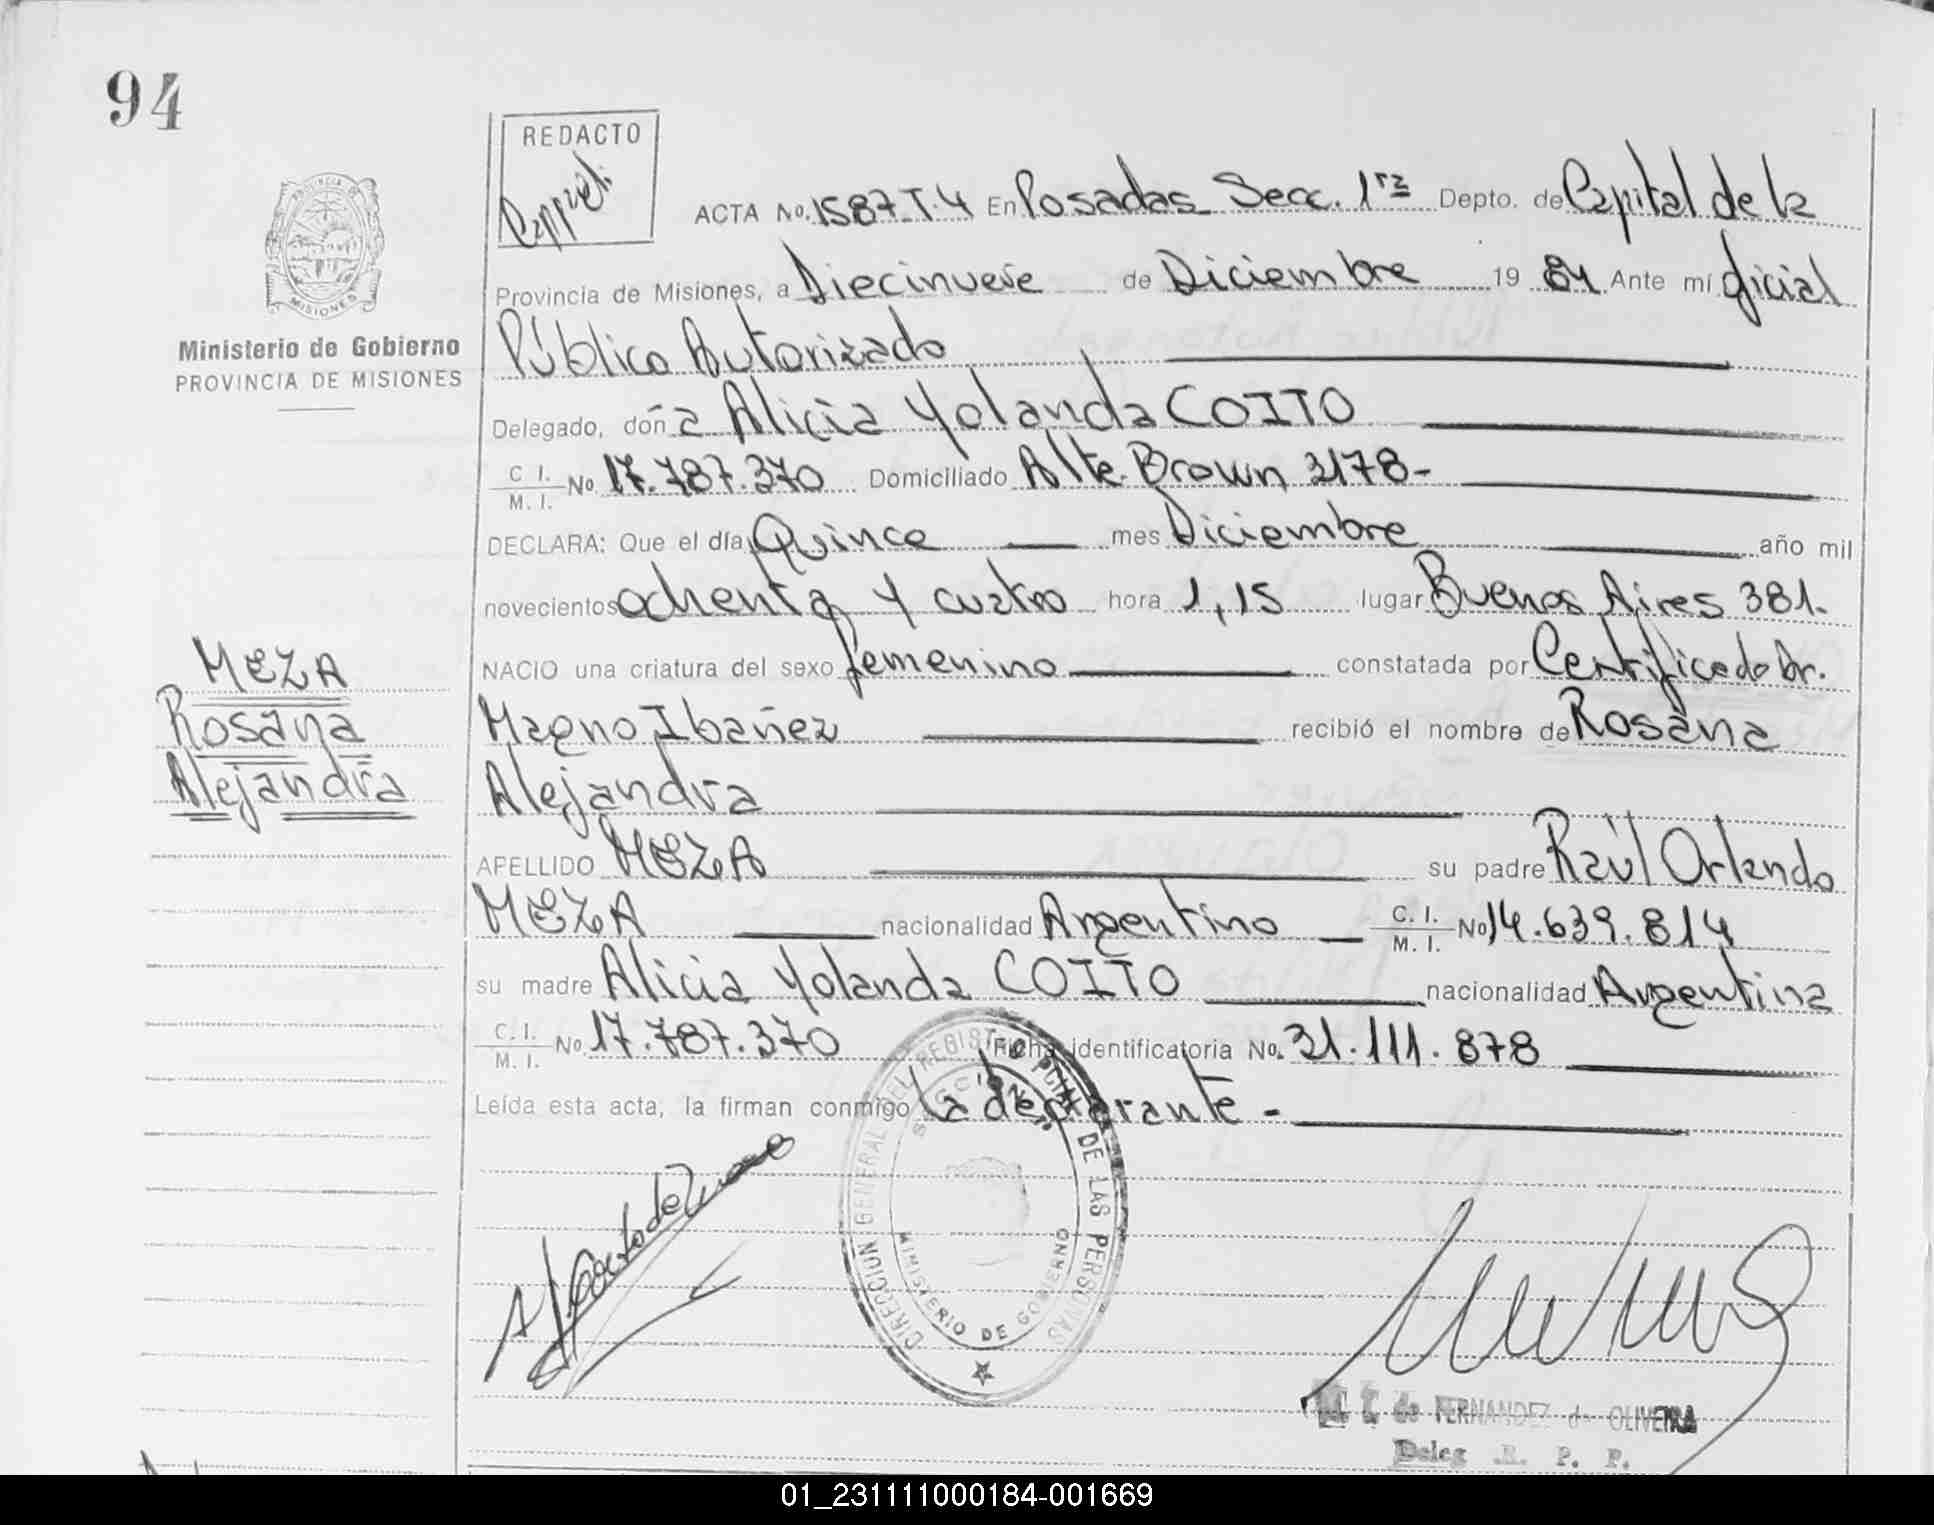 94
REDACTO
ACTA No. 1587 T.4 En Posadas Secc. 1ra Depto. de Capital de la
PROVINCIA DE
MISIONES
Provincia de Misiones, a Diecinueve de Diciembre 19 84 Ante mí Oficial
Ministerio de Gobierno
PROVINCIA DE MISIONES
Público Autorizado
Delegado, doña Alicia Yolanda COITO
C. I.
M. I. No. 17.787.370 Domiciliado Alte. Brown 3178-
DECLARA: Que el día Quince mes Diciembre año mil
novecientos ochenta y cuatro hora 1,15 lugar Buenos Aires 381.
NACIO una criatura del sexo femenino constatada por Certificado Dr.
MEZA
Rosana
Alejandra
Magno Ibañez recibió el nombre de Rosana
Alejandra
APELLIDO MEZA su padre Raúl Orlando
MEZA nacionalidad Argentino C. I.
M. I. No 14.639.814
su madre Alicia Yolanda COITO nacionalidad Argentina
C. I.
M. I. No. 17.787.370 Ficha identificatoria No. 31.111.878
Leída esta acta, la firman conmigo la declarante -
DIRECCION GENERAL DEL REGISTRO DE LAS PERSONAS
MINISTERIO DE GOBIERNO
de FERNANDEZ de OLIVEIRA
Deleg. R. P. P.
01_231111000184-001669